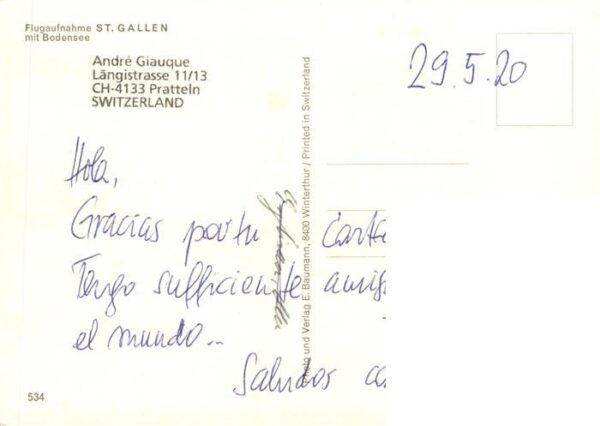 Flugaufnahme ST. GALLEN
mit Bodensee
André Giauque
Längistrasse 11/13
CH-4133 Pratteln
SWITZERLAND
29.5.20
Hola,
Gracias por tu Carta
Tengo sufficiente amig
el mundo...
Saludos co
534
Foto und Verlag E. Baumann, 8400 Winterthur / Printed in Switzerland